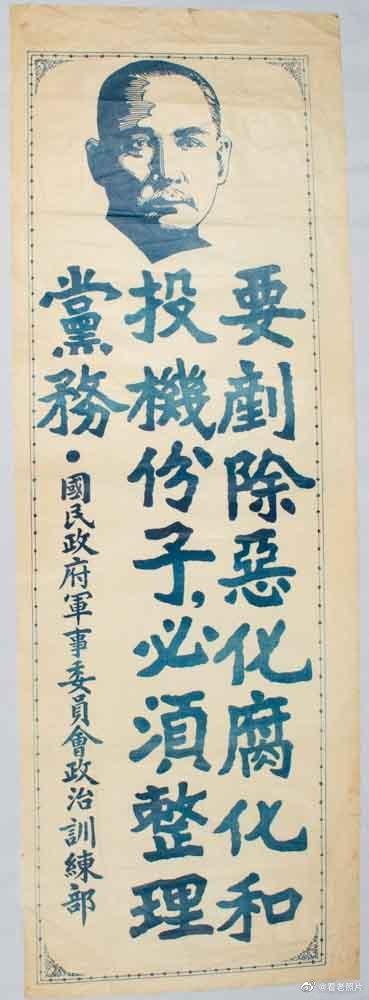 要剷除惡化腐化和
投機份子，必須整理
黨務·國民政府軍事委員會政治訓練部
@看老照片